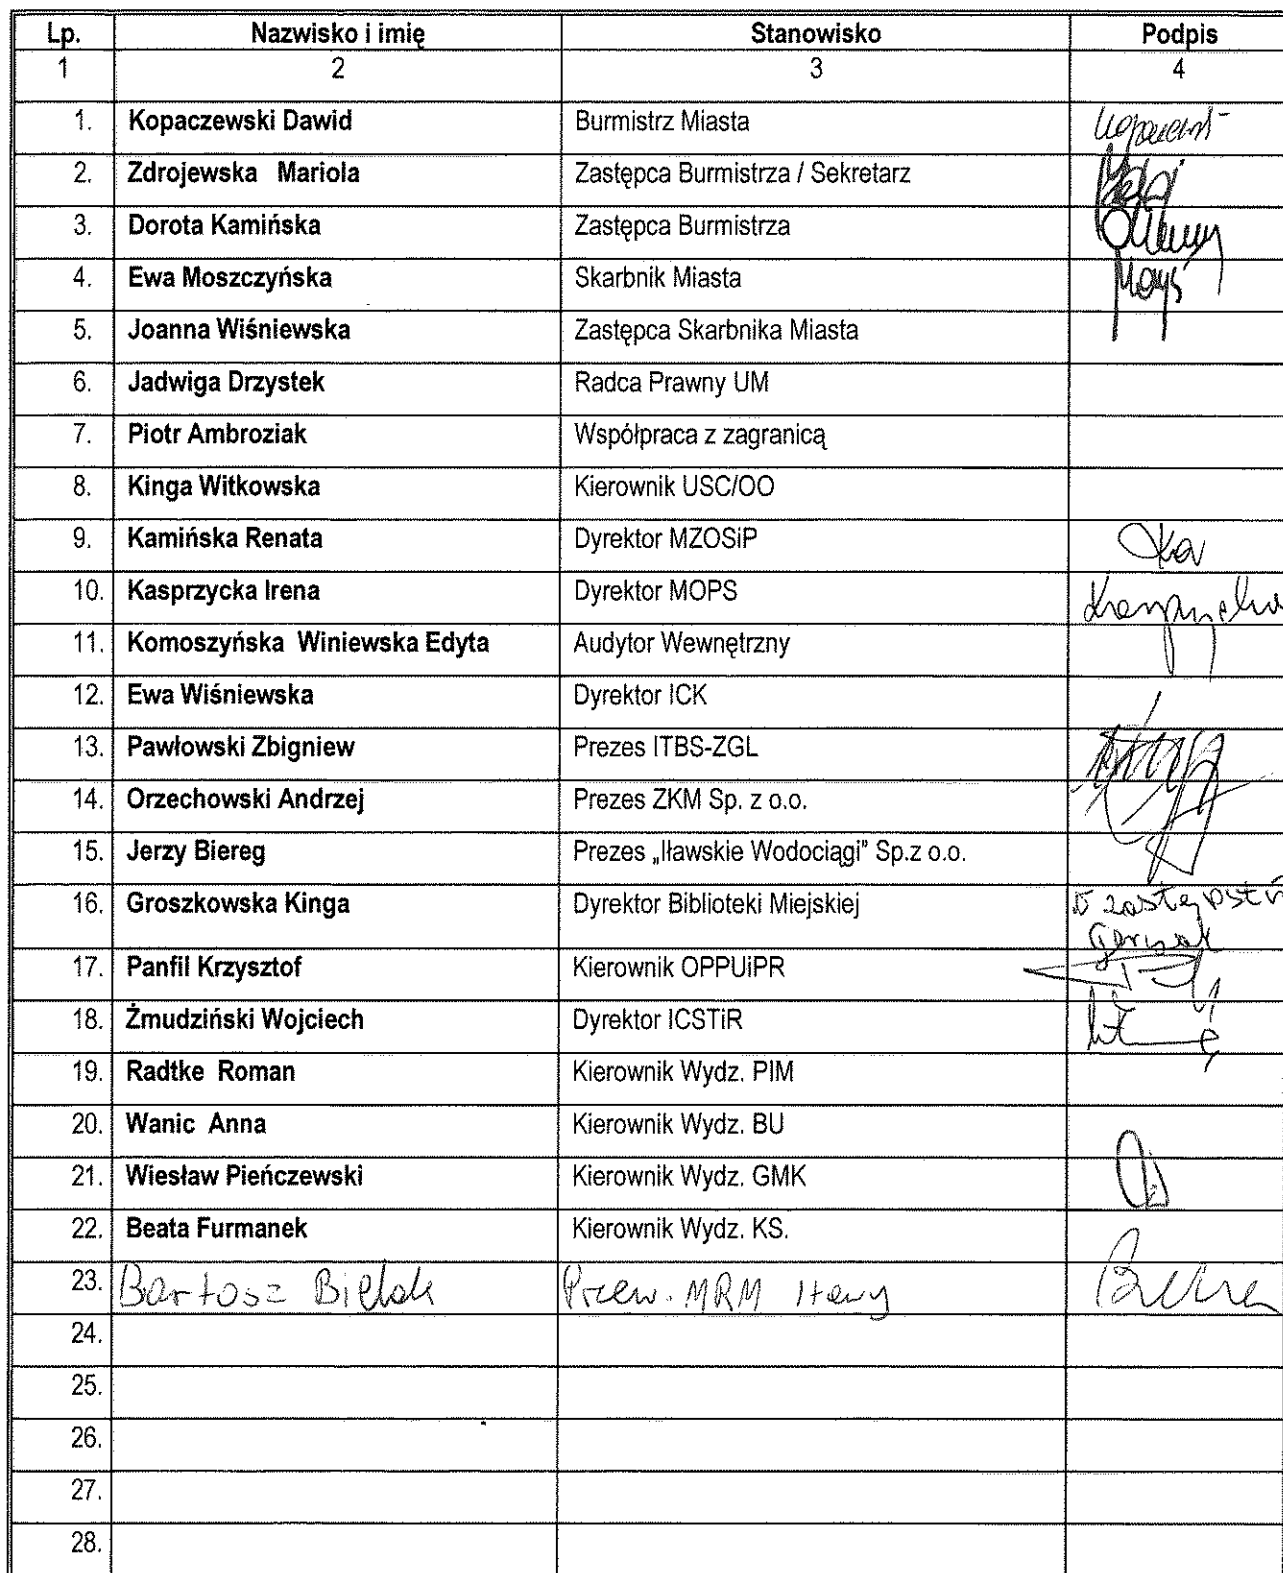 Lp. Nazwisko i imię Stanowisko Podpis
1 2 3 4
1. Kopaczewski Dawid Burmistrz Miasta
2. Zdrojewska Mariola Zastępca Burmistrza / Sekretarz
3. Dorota Kamińska Zastępca Burmistrza
4. Ewa Moszczyńska Skarbnik Miasta
5. Joanna Wiśniewska Zastępca Skarbnika Miasta
6. Jadwiga Drzystek Radca Prawny UM
7. Piotr Ambroziak Współpraca z zagranicą
8. Kinga Witkowska Kierownik USC/OO
9. Kamińska Renata Dyrektor MZOSiP
10. Kasprzycka Irena Dyrektor MOPS
11. Komoszyńska Winiewska Edyta Audytor Wewnętrzny
12. Ewa Wiśniewska Dyrektor ICK
13. Pawłowski Zbigniew Prezes ITBS-ZGL
14. Orzechowski Andrzej Prezes ZKM Sp. z o.o.
15. Jerzy Biereg Prezes „Iławskie Wodociągi” Sp.z o.o.
16. Groszkowska Kinga Dyrektor Biblioteki Miejskiej
17. Panfil Krzysztof Kierownik OPPUiPR
18. Żmudziński Wojciech Dyrektor ICSTiR
19. Radtke Roman Kierownik Wydz. PIM
20. Wanic Anna Kierownik Wydz. BU
21. Wiesław Pieńczewski Kierownik Wydz. GMK
22. Beata Furmanek Kierownik Wydz. KS.
23. Bartosz Bielak Przew. MRM Iławy
24.
25.
26.
27.
28.